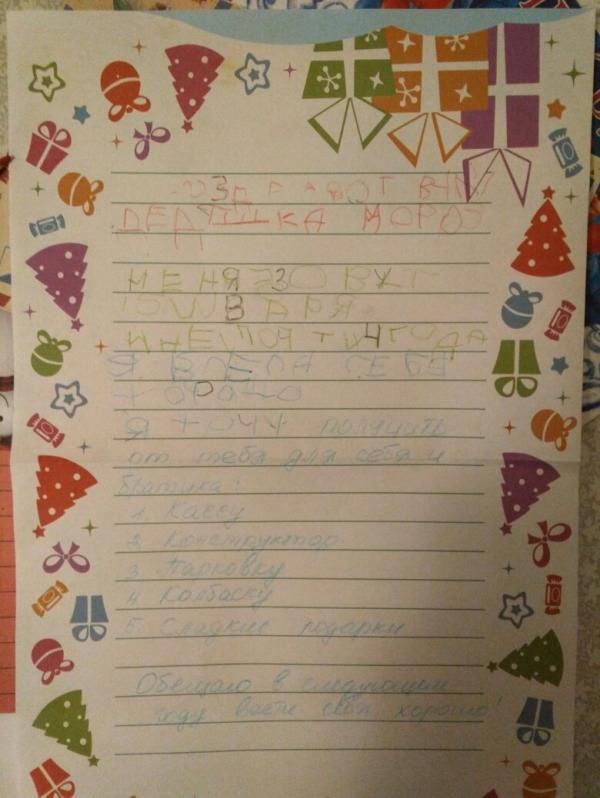 ДЕДУШКА МОРОЗ
МЕНЯ ЗОВУТ
ВАРЯ
МНЕ 4 ГОДА
Я ВЕЛА СЕБЯ
ХОРОШО
Я ХОЧУ получить
от тебя для себя и
братика:
1. Кассу
2. Конструктор
3. Парковку
4. Колбаску
5. Сладкие подарки
Обещаю в следующем
году вести себя хорошо!